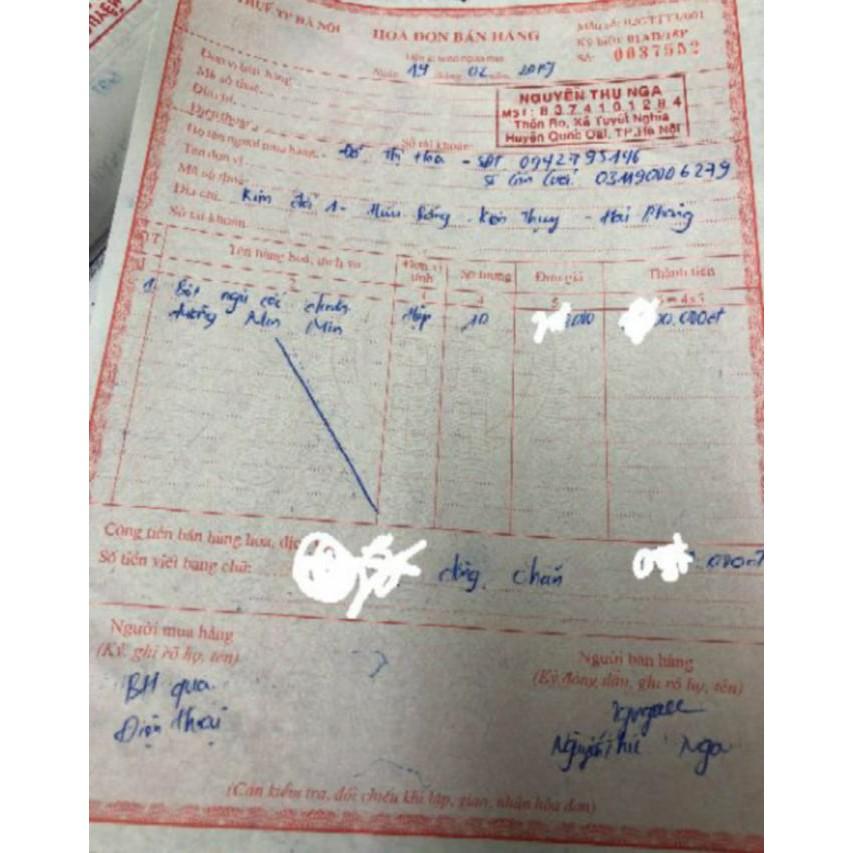 THUẾ TP HÀ NỘI
HÓA ĐƠN BÁN HÀNG
Mẫu số: 02GTTT3/001
Ký hiệu: 01AB/18P
Số: 0037552
Ngày 19 tháng 02 năm 2019
Đơn vị bán hàng:
Mã số thuế:
Địa chỉ:
Điện thoại: Số tài khoản:
NGUYỄN THU NGA
MST: 8374101284
Thôn Ro, Xã Tuyết Nghĩa
Huyện Quốc Oai, TP.Hà Nội
Họ tên người mua hàng: Đỗ Thị Hoa - SĐT 0942795146
Tên đơn vị
Mã số thuế: 031190006279
Địa chỉ: 1- - Hải Phòng
Số tài khoản
Tên hàng hóa, dịch vụ Đơn vị tính Số lượng Đơn giá Thành tiền
2 4 5 = 4x5
1. Bột ngũ cốc dinh Hộp 10 000 00.000đ
dưỡng Min Min
Cộng tiền bán hàng hóa, dịch
Số tiền viết bằng chữ: đồng chẵn
Người mua hàng
(Ký, ghi rõ họ, tên)
BH qua
Điện thoại
Người bán hàng
(Ký đóng dấu, ghi rõ họ, tên)
Nguyễn Thu Nga
(Cần kiểm tra, đối chiếu khi lập, giao, nhận hóa đơn)